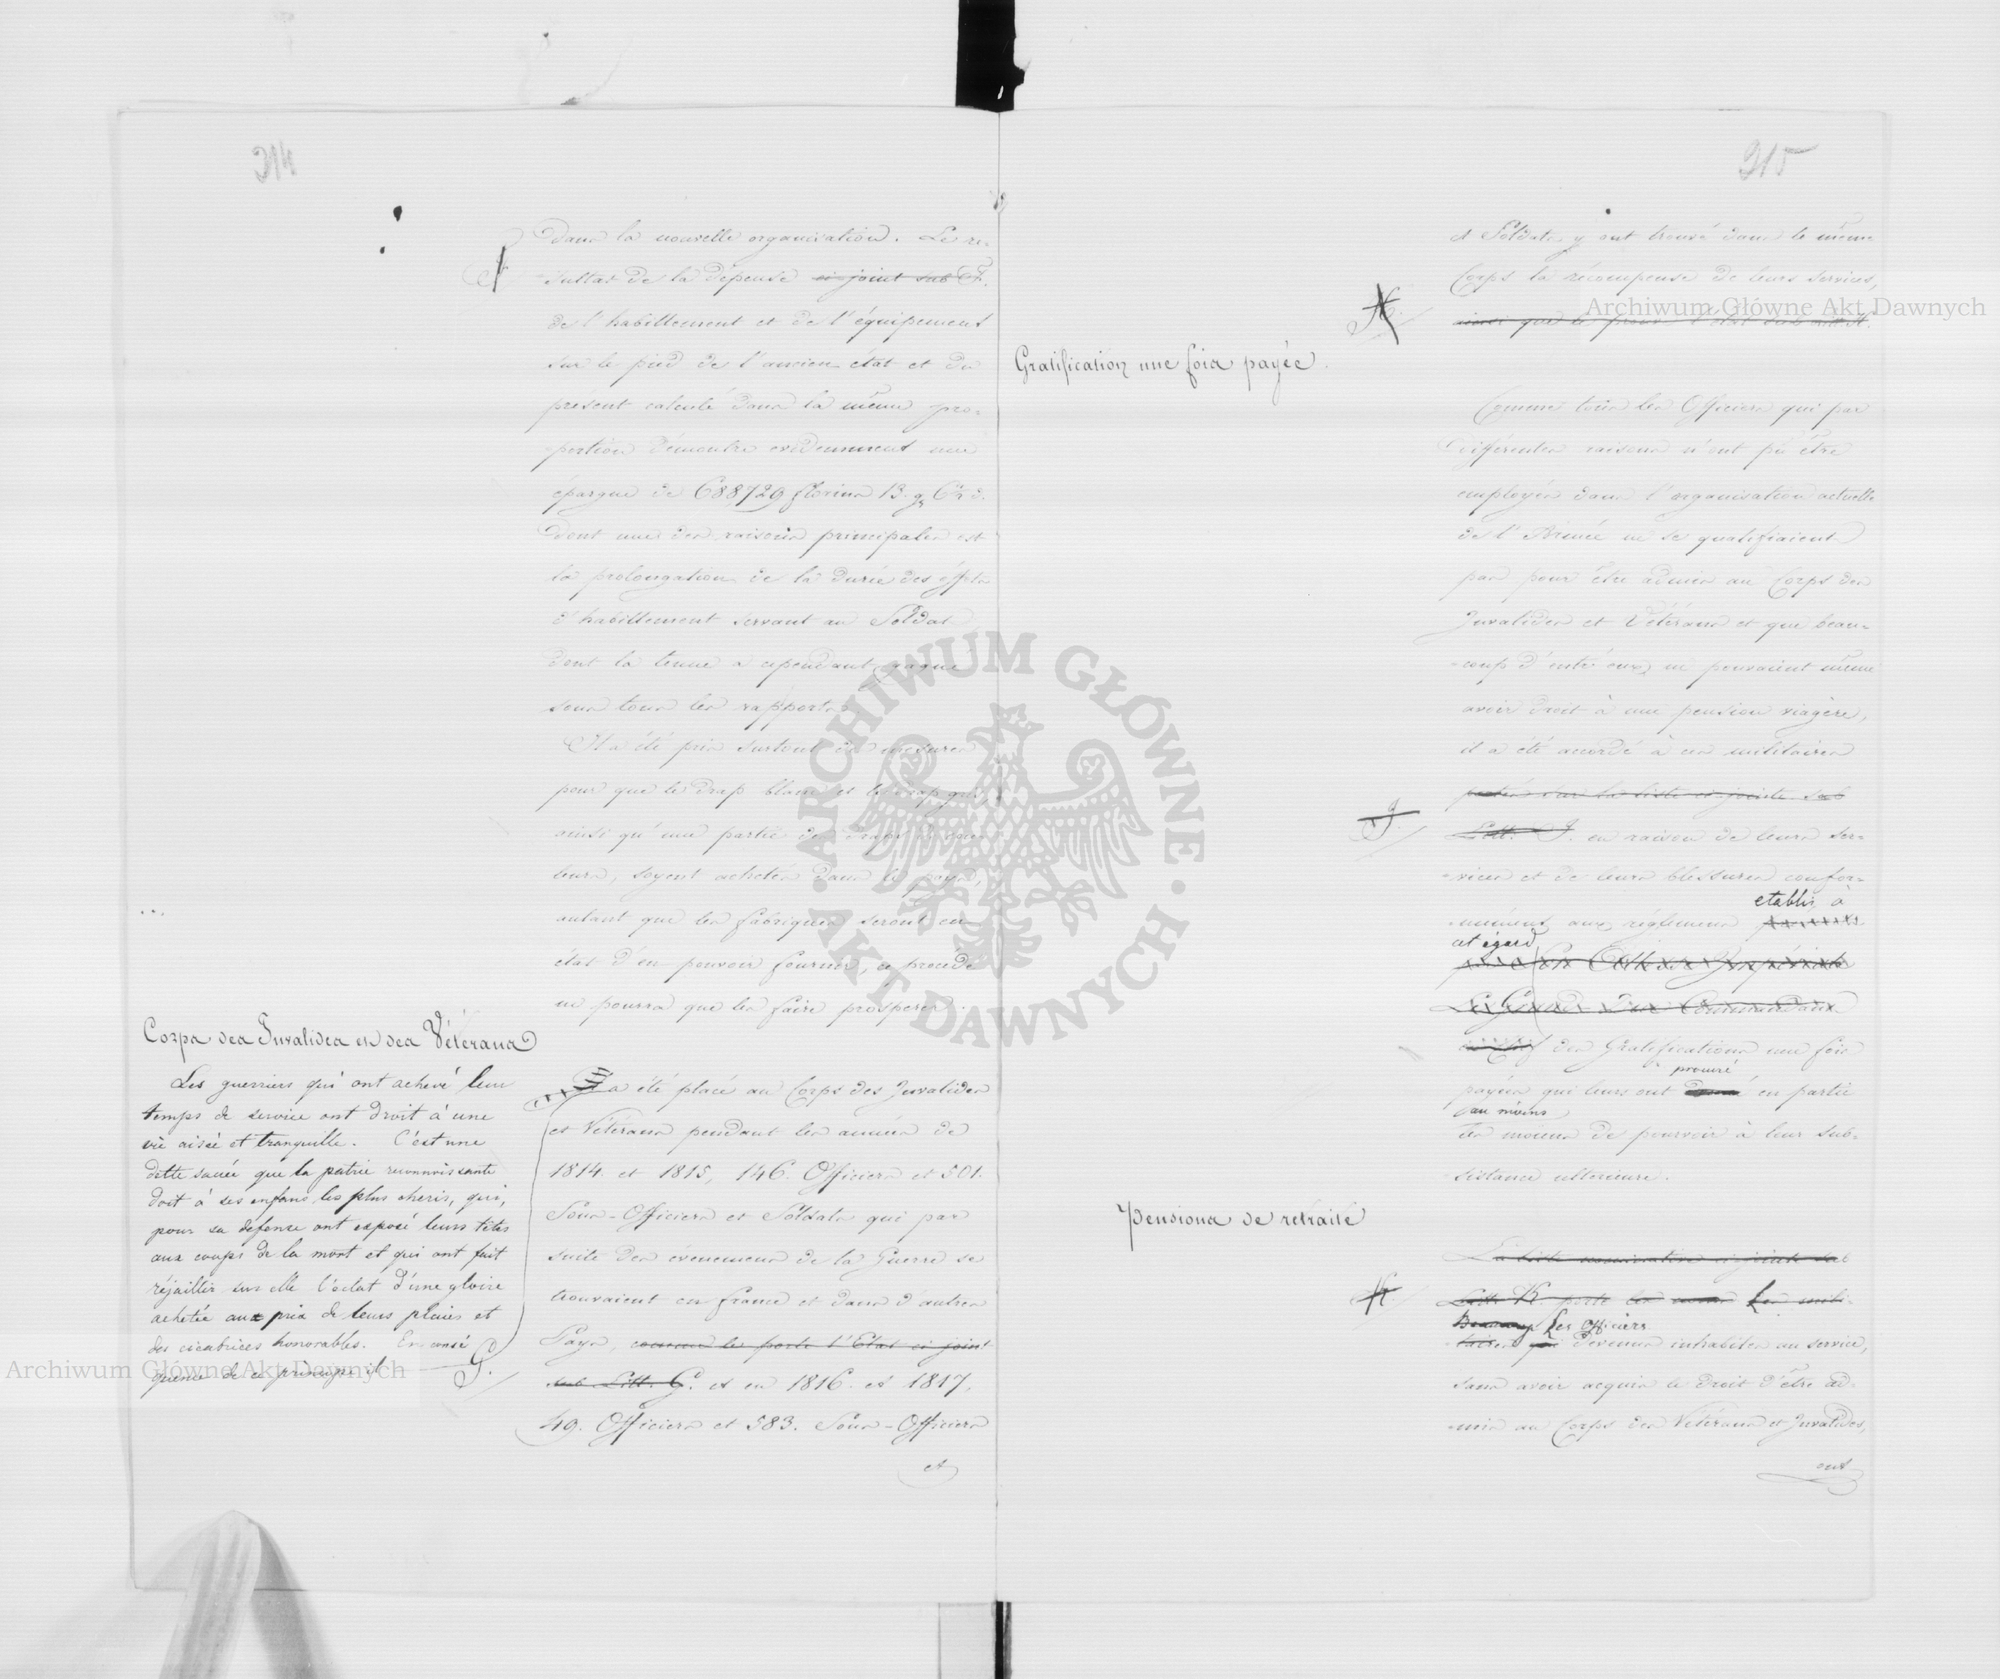 314
dans la nouvelle organisation. Le ré-
F
sultat de la dépense ci-joint sub F.
de l'habillement et de l'équipement
sur le pied de l'ancien état et du
présent calculé dans la même pro-
portion démontre evidemment une
épargne de 688729 florins 13. g
dont une des raisons principales est
la prolongation de la durée des effets
d'habillement servant au Soldat
dont la tenue a cependant gagné
sous tous les rapports.
Il a été pris surtout des mesures
pour que le drap blanc et le drap gris,
ainsi qu'une partie des draps de cou-
leurs, soyent achetés dans le pays,
autant que les fabriques seront en
état d'en pouvoir fournir, ce procédé
ne pourra que les faire prosperer.
Corps des Invalides et des Vétérans
Les guerriers qui ont achevé leur
temps de service ont droit à une
vie aisée et tranquille. C'est une
dette sacrée que la patrie reconnoissante
doit à ses enfans les plus cheris, qui,
pour sa défense ont exposé leurs têtes
aux coups de la mort et qui ont fait
réjaillir sur elle l'éclat d'une gloire
achetée aux prix de leurs plaies et
des cicatrices honorables. En consé
quence de ce principe il
G.
a été placé au Corps des Invalides
et Vétérans pendant les années de
1814 et 1815, 146. Officiers et 501.
Sous-Officiers et Soldats qui par
suite des évenemens de la Guerre se
trouvaient en France et dans d'autres
Pays, comme les porte l'Etat ci joint
sub Litt. G. et en 1816. et 1817.
49. Officiers et 583. Sous-Officiers
et
315
et Soldats y ont trouvé dans le même
Corps la récompense de leurs services,
H.
ainsi que le prouve l'état sub Litt. H.
Gratification une fois payée.
Comme tous les Officiers qui par
differentes raisons n'ont pû être
employés dans l'organisation actuelle
de l'Armée ne se qualifiaient
pas pour être admis au Corps des
Invalides et Vétérans et que beau-
coup d'entr'eux ne pouvaient même
avoir droit à une pension viagère,
il a été accordé à ces militaires
portés sur la liste ci jointe sub
J.
Litt. J. en raison de leurs ser-
vices et de leurs blessures confor-
etablis à
mément aux réglemens
cet égard
Son Altesse Impériale
Le Grand Duc Commandant
en Chef des Gratifications une fois
procuré
payées qui leurs ont donné en partie
au moins
les moiens de pourvoir à leur sub-
sistance ulterieure.
Pensions de retraite
La liste nominative ci jointe sub
K.
Litt. K. porte les noms Les mili-
Beaucoup Les Officiers
taires qui devenus inhabiles au service,
sans avoir acquis le Droit d'être ad-
mis au Corps des Vétérans et Invalides,
ont
Archiwum Główne Akt Dawnych
Archiwum Główne Akt Dawnych
ARCHIWUM GŁÓWNE
AKT DAWNYCH